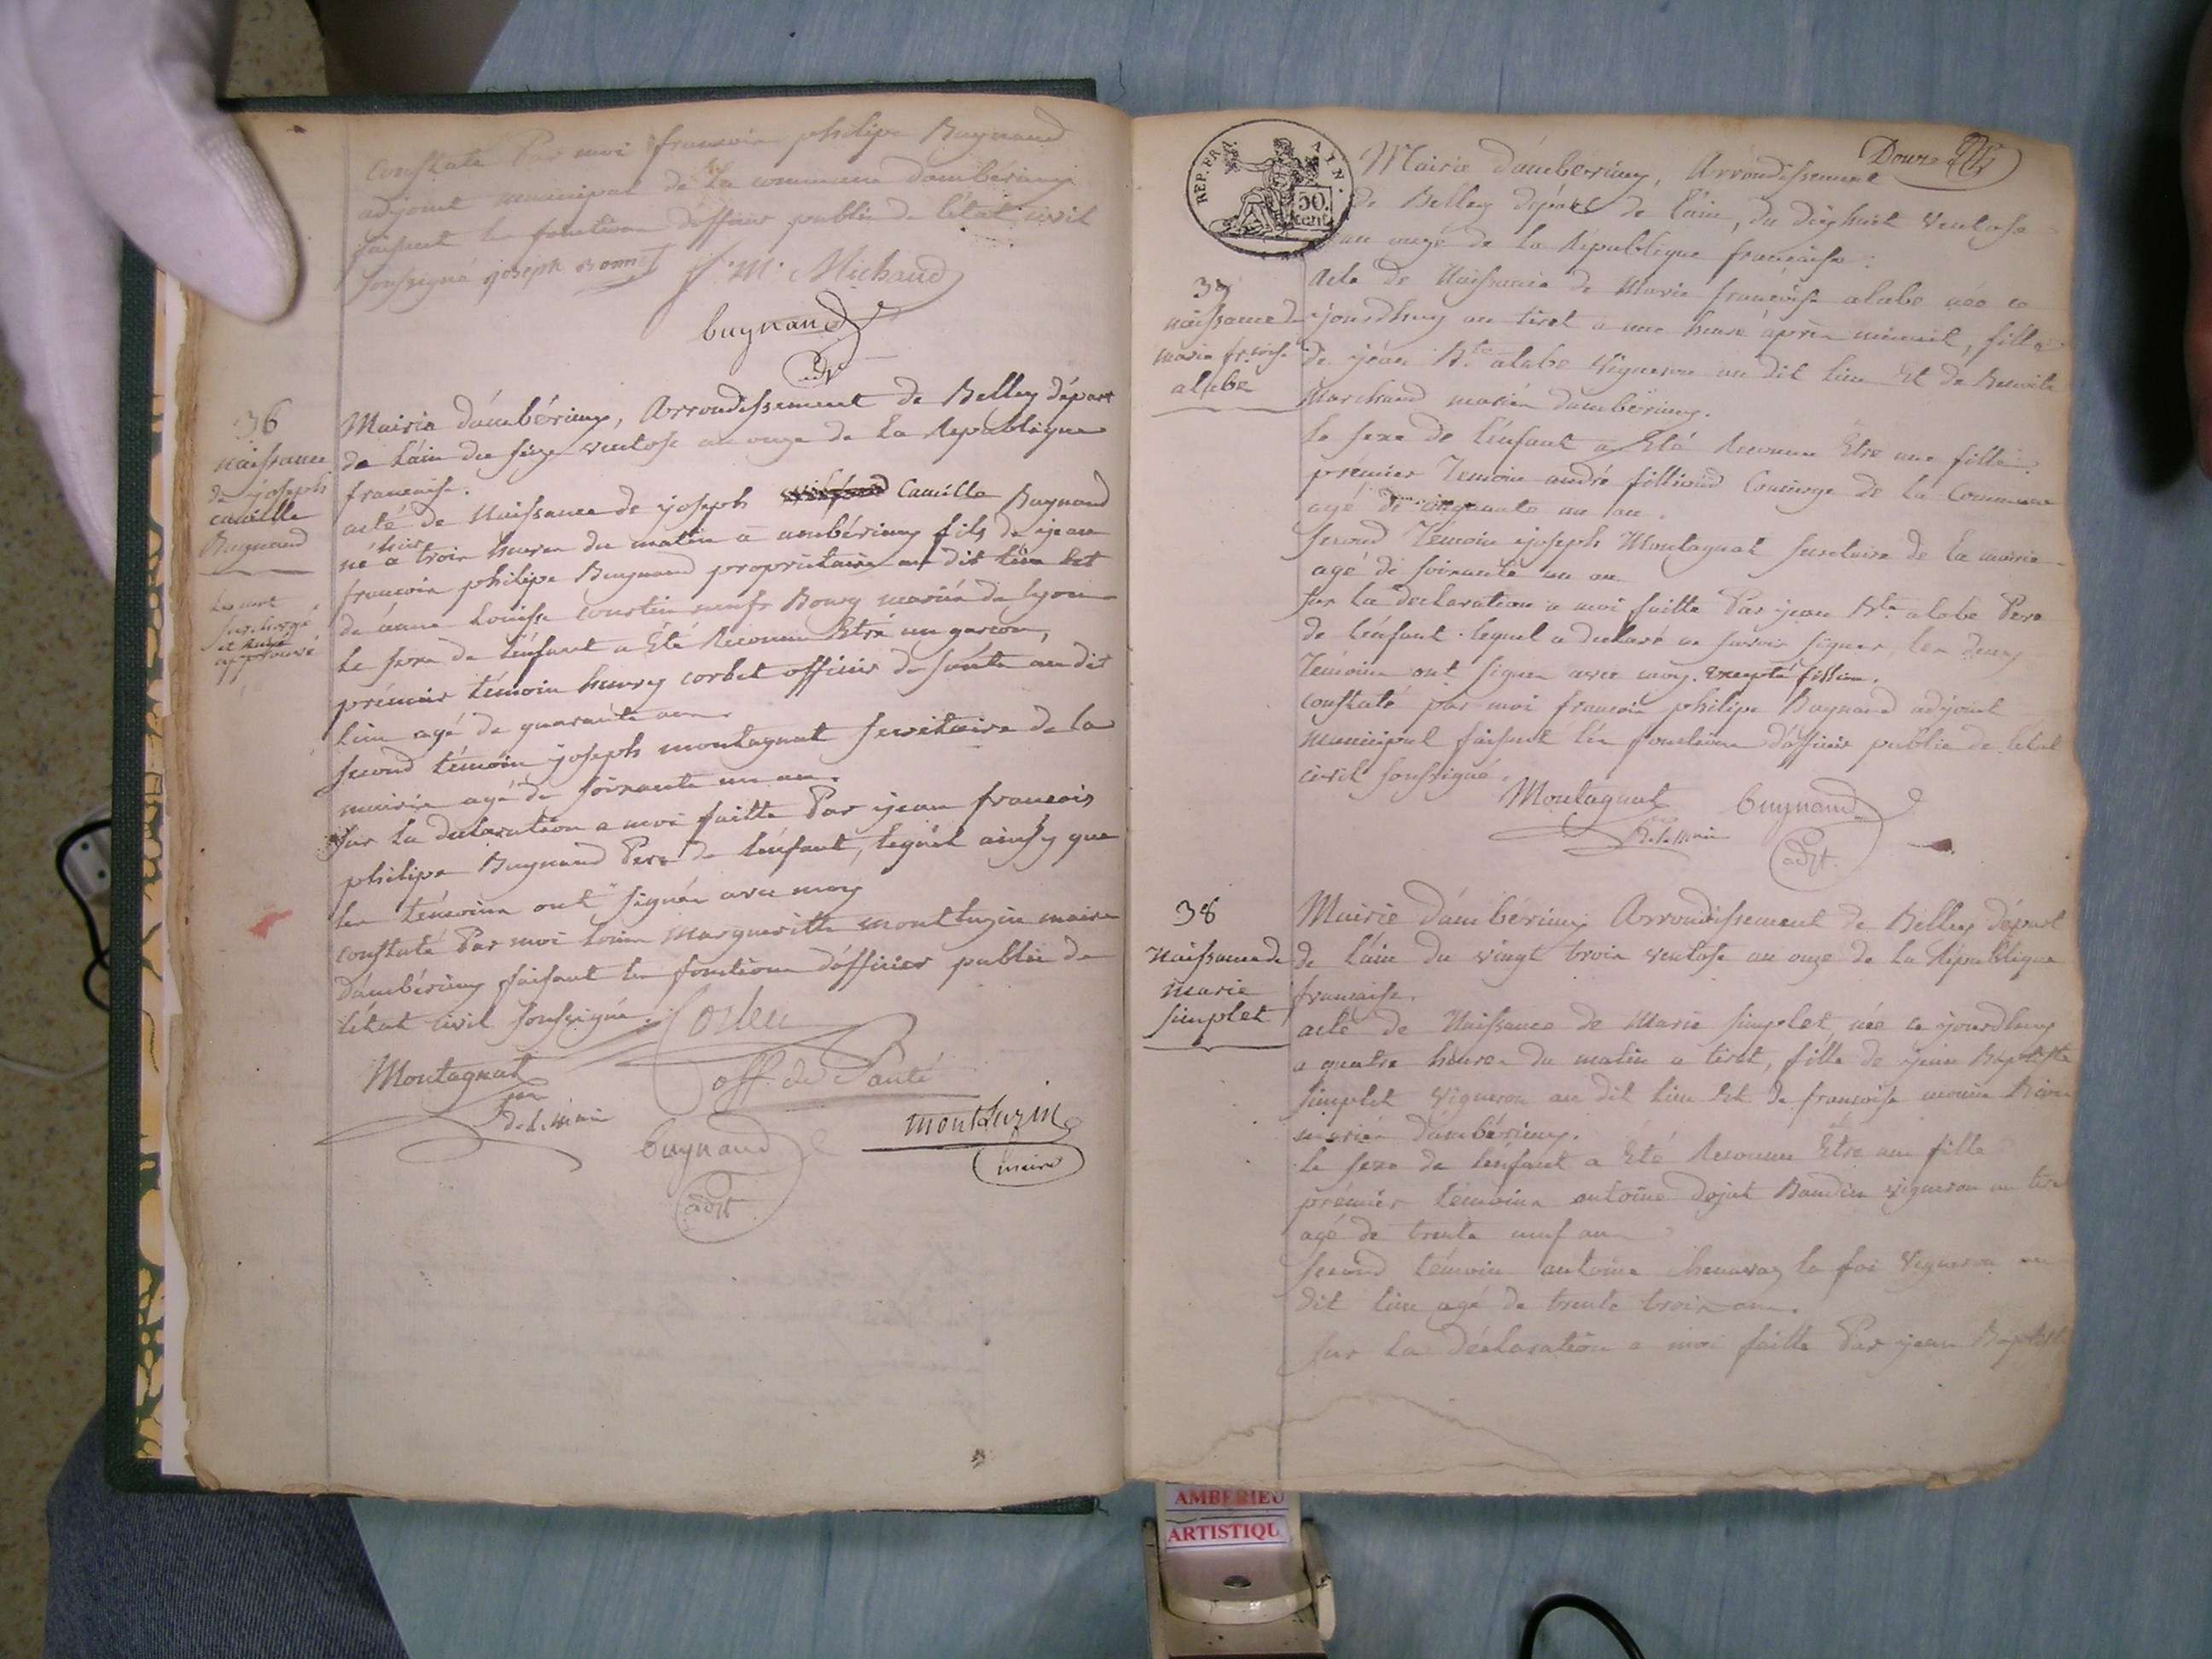 constaté Par moi francois philipe Bugnand
adjoint municipal de la commune dambérieuy
faisant les fonctions dofficier public de létat civil
soussigné joseph Bonnet J. M. Michaud
bugnand
adjt
36
naissance
de joseph
camille
Bugnand
Mairie dámbérieuy, Arrondissement de Belley départ
de láin du seize ventose an onze de la République
francaise.
acté de Naissance de joseph Camille Bugnand
né hier a trois heures du matin a ambérieuy fils de jean
francois philipe Bugnand propriétaire au dit lieu Et
de anne Louise mariés de lyon
le sexe de lénfant a Eté Reconnu Etre un garcon,
prémier témoin henry corbet officier de santé au dit
lieu agé de quarante ans
second témoin joseph montagnat secrétaire de la
mairie agé de soixante un an.
Sur la declaration a moi faitte Par jean francois
philipe Bugnand Pere de lénfant, lequel ainsy que
les témoins ont signés avec moy
constaté Par moi Louis Margueritte montluzin maire
dámbérieuy faisant les fonctions dófficier public de
létat civil soussigné.
le mot
surchargé
et Rayé
approuvé
Corbet
off. de Santé
Montagnat
De la Mairie
bugnand
adjt
montluzin
maire
Douze
REP. FRA. AIN.
50. cent.
Mairie dámberieuy, Arrondissement
de Belley départ de láin, du dixhuit ventose
an onze de la République francaise.
37
naissance de
marie frcoise
alabe
Acte de Naissance de Marie francoise alabe née ce
jourdhuy au tiret a une heure après minuit, fille
de jean Bte alabe vigneron au dit lieu Et de Benoite
Marchand mariés dambérieuy.
le sexe de lénfant a Eté Reconnu Etre une fille.
prémier Temoin andré filliond Concierge de la Commune
agé de cinquante un an.
second Temoin joseph Montagnat secretaire de la mairie
agé de soixante un an
sur la declaration a moi faitte Par jean Bte alabe Pere
de lénfant. lequel a declaré ne savoir signer, les deux
Témoins ont signés avec moy. excepté fillion.
constaté par moi francois philipe Bugnand adjoint
municipal faisant lés fonctions dófficier public de létat
civil soussigné.
Montagnat
De la Mairie
bugnand
adjt.
38
Naissance de
marie
simplet
Mairie dámbérieuy Arrondissement de Belley départ
de láin du vingt trois ventose an onze de la République
francaise.
acte de Naissance de Marie simplet, née ce jourdhuy
a quatre heures du matin a tiret, fille de jean Baptiste
simplet vigneron au dit lieu Et de francoise
mariés dámbérieuy.
le sexe de lenfant a Eté Reconnu Etre une fille
prémier témoins antoine dojat Baudin vigneron au tiret
agé de trente neuf ans
second témoin antoine la foi vigneron au
dit lieu agé de trente trois ans.
sur la déclaration a moi faitte Par jean Baptiste
AMBERIEU
ARTISTIQU